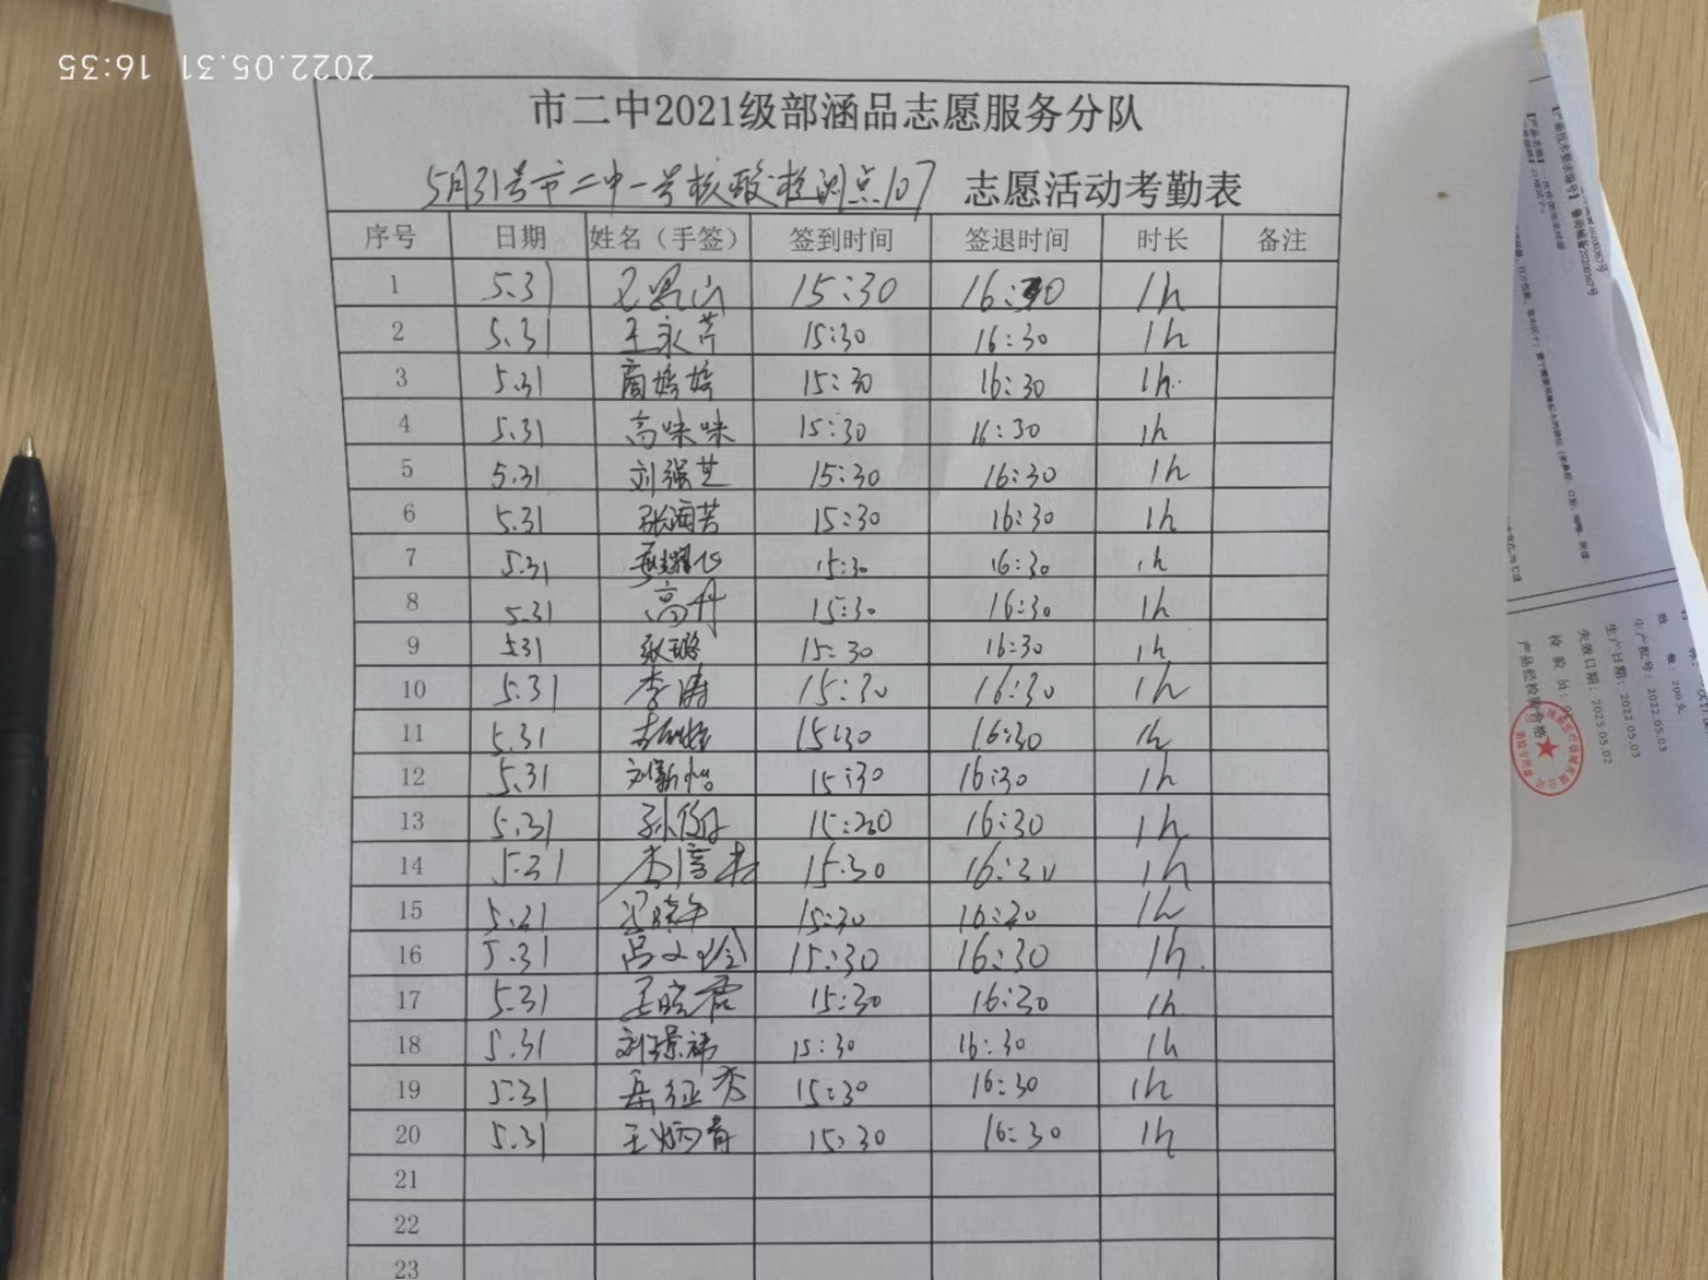 2022.05.31 16:35
市二中2021级部涵品志愿服务分队
5月31号市二中一号核酸检测点107 志愿活动考勤表
序号 日期 姓名（手签） 签到时间 签退时间 时长 备注
1 5.31 15:30 16:30 1h
2 5.31 王永芹 15:30 16:30 1h
3 5.31 商婷婷 15:30 16:30 1h
4 5.31 高咪咪 15:30 16:30 1h
5 5.31 刘强芝 15:30 16:30 1h
6 5.31 张海芳 15:30 16:30 1h
7 5.31 15:30 16:30 1h
8 5.31 高升 15:30 16:30 1h
9 5.31 张璐 15:30 16:30 1h
10 5.31 李涛 15:30 16:30 1h
11 5.31 15:30 16:30 1h
12 5.31 刘新怡 15:30 16:30 1h
13 5.31 15:30 16:30 1h
14 5.31 15:30 16:30 1h
15 5.31 15:30 16:30 1h
16 5.31 吕文玲 15:30 16:30 1h
17 5.31 王晓君 15:30 16:30 1h
18 5.31 刘璟祎 15:30 16:30 1h
19 5.31 岳征秀 15:30 16:30 1h
20 5.31 王炳青 15:30 16:30 1h
21
22
23
生产批号：2022.05.03
生产日期：2022.05.03
失效日期：2025.05.02
检验员：
产品经检验合格